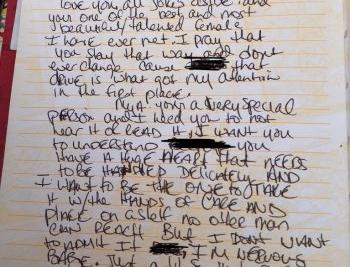 love you, all jokes aside. and
your one of the best and most
beautifully talented female
I have ever met. I pray that
you stay that way and dont
ever change cause that
drive is what got my attention
in the first place.
your a very special
person and I need you to not
hear it or READ it, I WANT you
to understand you
have A Huge HEART that NEEDS
TO BE HANDLED DELICATELY AND
I WANT TO BE THE ONE TO TAKE
it w/the HANDS OF CARE AND
PLACE on A self no other man
CAN REACH But I DON'T WANT
to ADMIT It I'M NERVOUS
BABE. Just